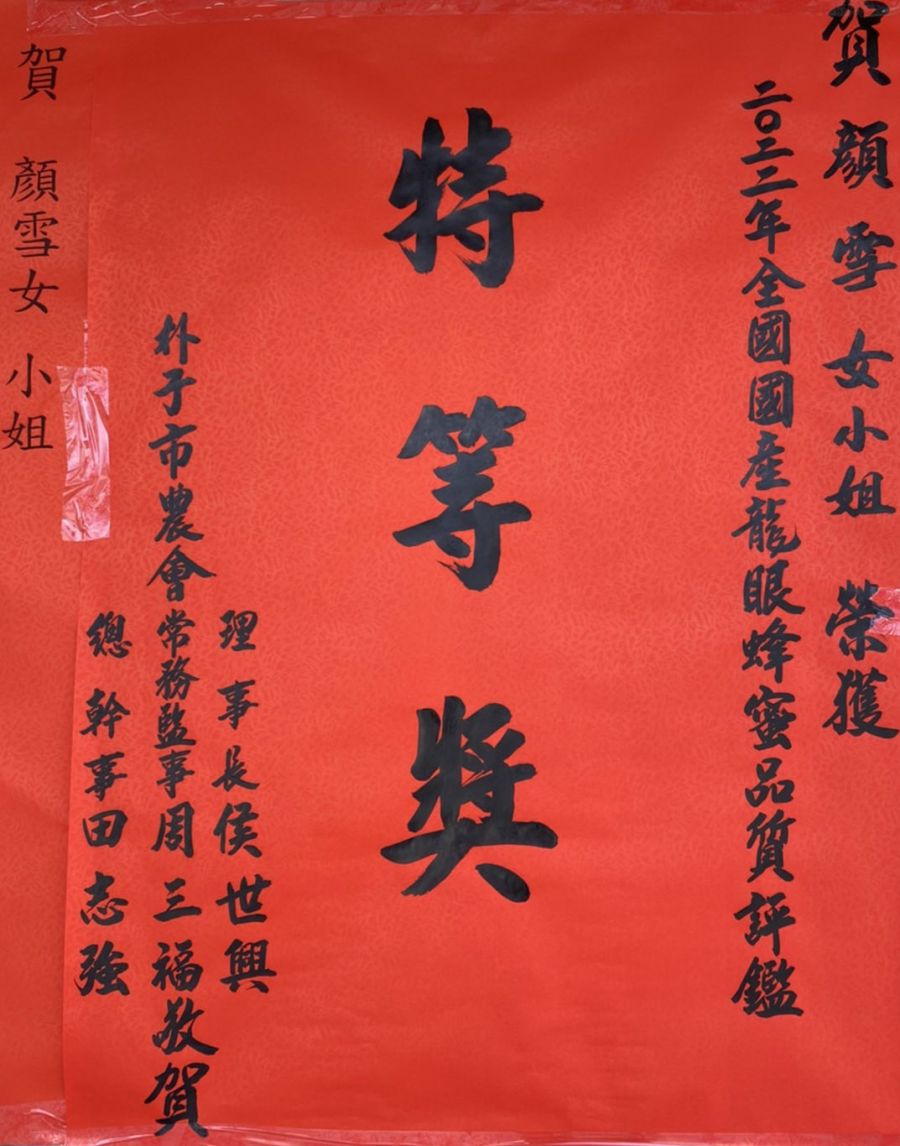 賀顏雪女小姐 榮獲
二〇二二年全國國產龍眼蜂蜜品質評鑑
特等獎
理事長侯世興
朴子市農會常務監事周三福敬賀
總幹事田志強
賀 顏雪女 小姐